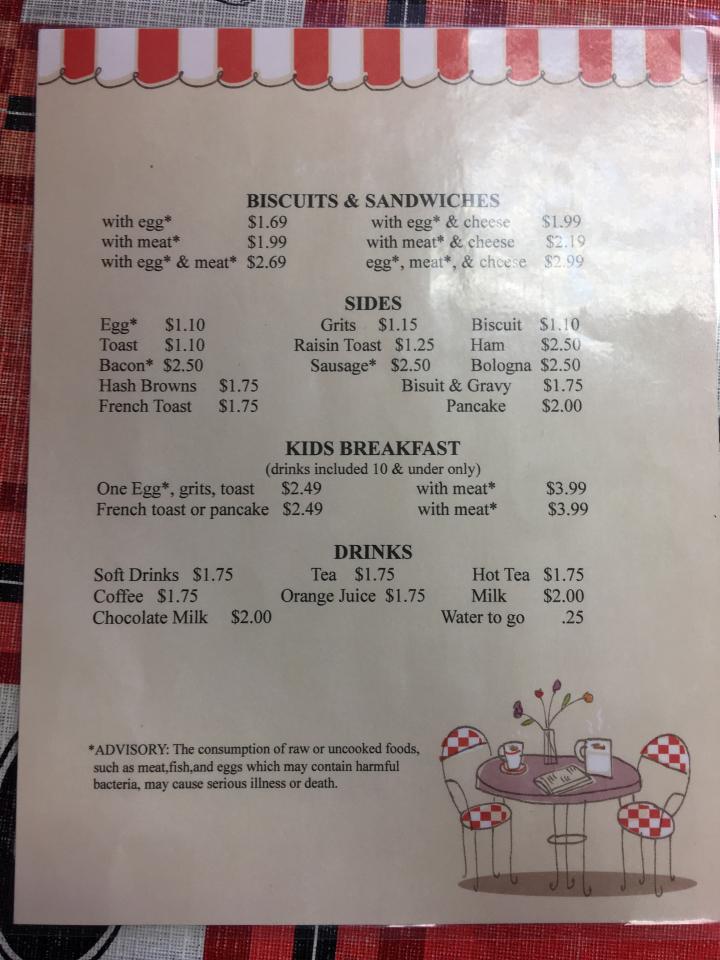 BISCUITS & SANDWICHES
with egg* $1.69 with egg* & cheese $1.99
with meat* $1.99 with meat* & cheese $2.19
with egg* & meat* $2.69 egg*, meat*, & cheese $2.99
SIDES
Egg* $1.10 Grits $1.15 Biscuit $1.10
Toast $1.10 Raisin Toast $1.25 Ham $2.50
Bacon* $2.50 Sausage* $2.50 Bologna $2.50
Hash Browns $1.75 Bisuit & Gravy $1.75
French Toast $1.75 Pancake $2.00
KIDS BREAKFAST
(drinks included 10 & under only)
One Egg*, grits, toast $2.49 with meat* $3.99
French toast or pancake $2.49 with meat* $3.99
DRINKS
Soft Drinks $1.75 Tea $1.75 Hot Tea $1.75
Coffee $1.75 Orange Juice $1.75 Milk $2.00
Chocolate Milk $2.00 Water to go .25
*ADVISORY: The consumption of raw or uncooked foods,
such as meat,fish,and eggs which may contain harmful
bacteria, may cause serious illness or death.